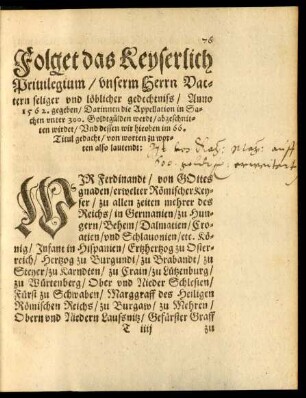 76
Folget das Keyserlich
Priuilegium / vnserm Herrn Vat-
tern seliger vnd löblicher gedechtniss / Anno
1562. gegeben / Darinnen die Appellation in Sa-
chen vnter 300. Goldtgülden werde / abgeschnit-
ten wirdet / Vnd dessen wir hieoben im 66.
Titul gedacht / von worten zu wor-
ten also lautendt:
WIR Ferdinandt / von GOttes
gnaden / erwelter Römischer Key-
ser / zu allen zeiten mehrer des
Reichs / in Germanien / zu Hun-
gern / Behem / Dalmatien / Croa-
tien / vnd Schlauonien / etc. Kö-
nig / Infant in Hispanien / Ertzhertzog zu Oster-
reich / Hertzog zu Burgundi / zu Brabandt / zu
Steyer / zu Karndten / zu Crain / zu Lützenburg /
zu Würtenberg / Ober vnd Nieder Schlesien /
Fürst zu Schwaben / Marggraff des Heiligen
Römischen Reichs / zu Burgaw / zu Mehren /
Obern vnd Niedern Laussnitz / Gefürster Graff
T iiij zu